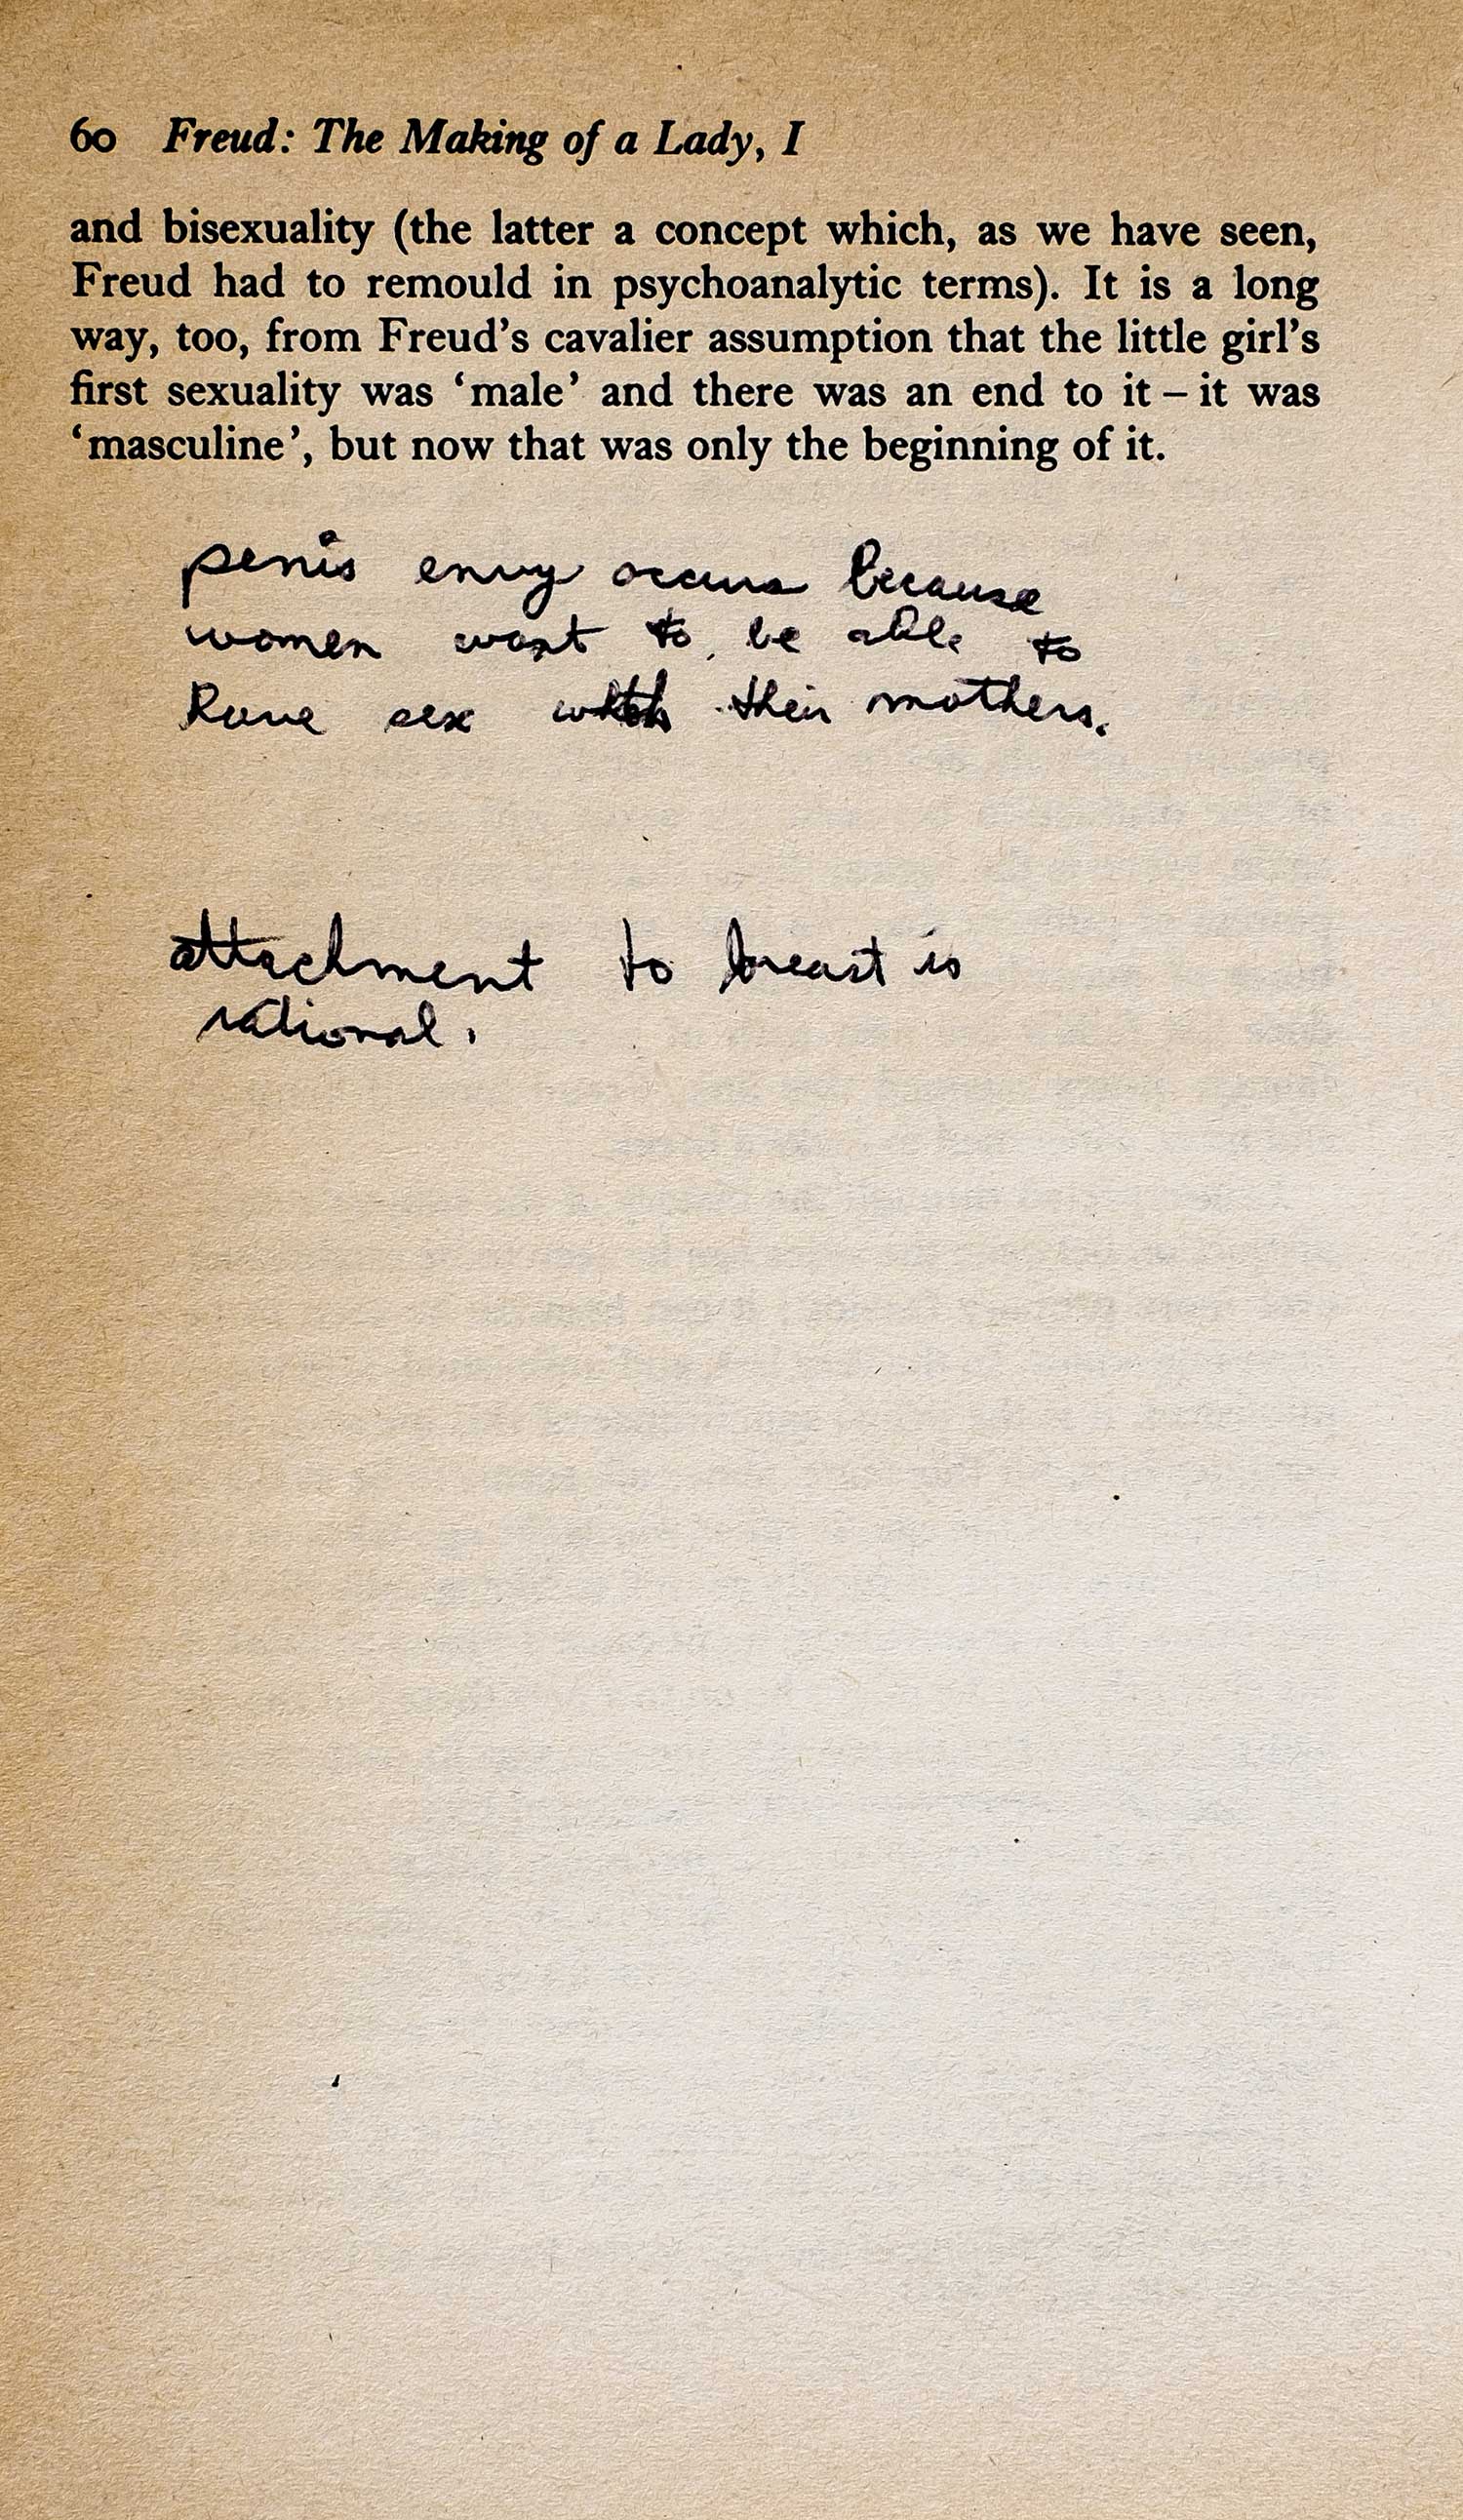 60 Freud: The Making of a Lady, I
and bisexuality (the latter a concept which, as we have seen,
Freud had to remould in psychoanalytic terms). It is a long
way, too, from Freud's cavalier assumption that the little girl's
first sexuality was ‘male’ and there was an end to it – it was
‘masculine’, but now that was only the beginning of it.
penis envy occurs because
women want to be able to
have sex with their mothers.
attachment to breast is
rational.